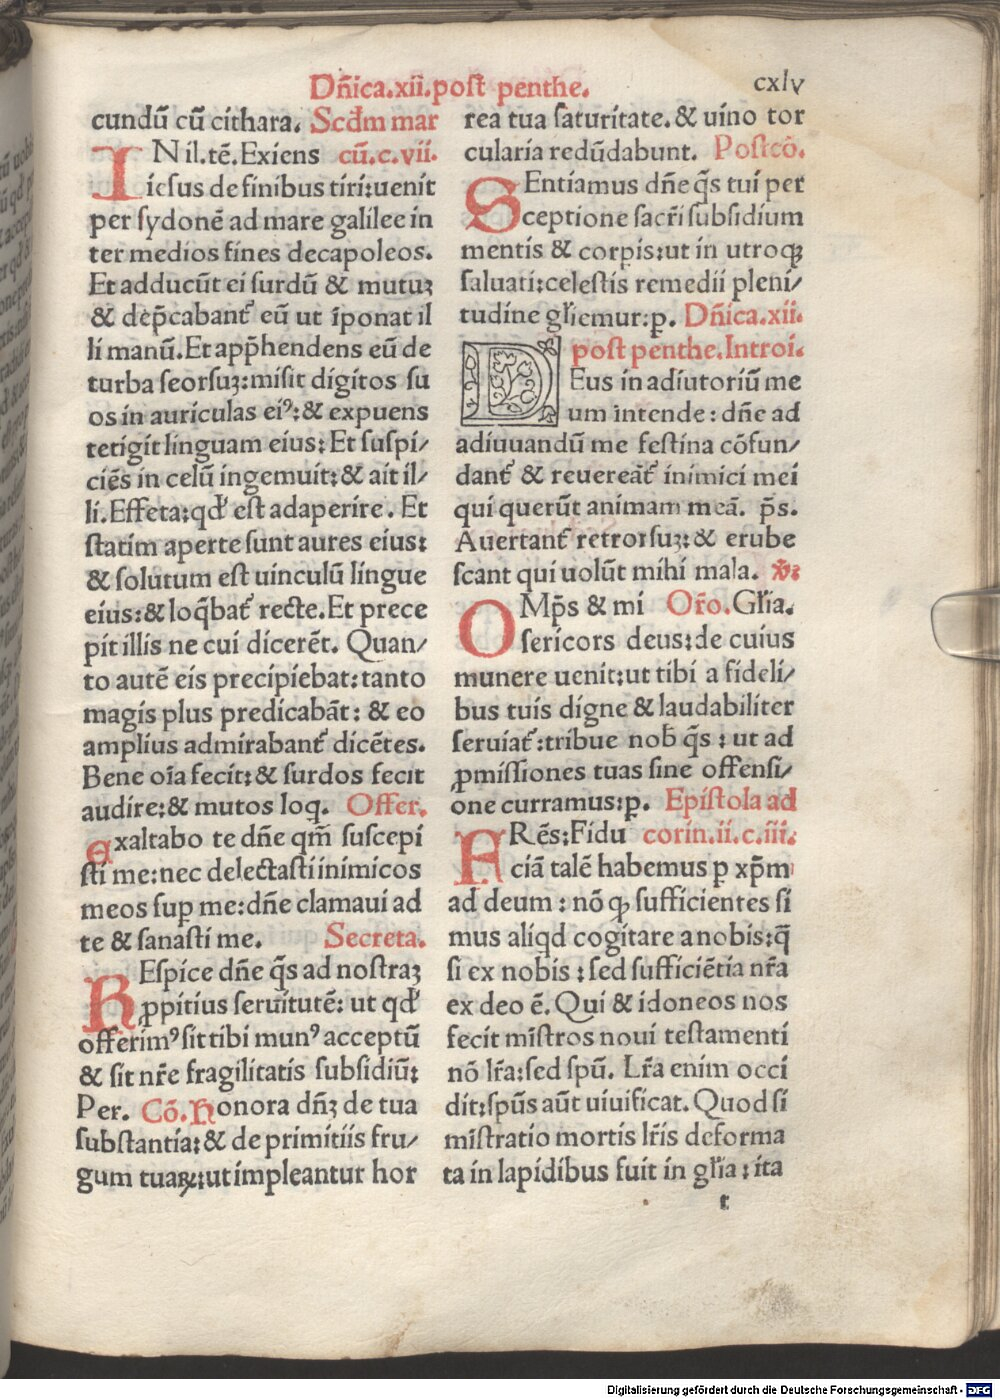 Dn̄ica.xii.post penthe.
cxlv
cundū cū cithara. Scd̄m mar
IN il.tē.Exiens cū.c.vii.
iesus de finibus tiri:uenit
per sydonē ad mare galilee in
ter medios fines decapoleos.
Et adducūt ei surdū & mutuꝫ
& dep̄cabant᷑ eū ut īponat il
li manū.Et app̄hendens eū de
turba seorsuꝫ:misit digitos su
os in auriculas eiꝰ:& expuens
tetigit linguam eius: Et suspi/
ciēs in celū ingemuit:& ait il/
li.Effeta:qd̓ est adaperire. Et
statim aperte sunt aures eius:
& solutum est uinculū lingue
eius:& loq̄bat᷑ recte.Et prece
pit illis ne cui dicerēt. Quan/
to autē eis precipiebat:tanto
magis plus predicabāt: & eo
amplius admirabant᷑ dicētes.
Bene oīa fecit:& surdos fecit
audire:& mutos loq. Offer.
exaltabo te dn̄e qm̄ suscepi
sti me:nec delectasti inimicos
meos suꝑ me:dn̄e clamaui ad
te & sanasti me. Secreta.
REspice dn̄e q̄s ad nostraꝫ
ꝓpitius seruitutē: ut qd̓
offerimꝰ sit tibi munꝰ acceptū
& sit nr̄e fragilitatis subsidiū:
Per. Cō. Honora dn̄ꝫ de tua
substantia:& de primitiis fru/
gum tuaꝝ:ut impleantur hor
rea tua saturitate.& uino tor
cularia redūdabunt. Postcō.
SEntiamus dn̄e q̄s tui per
ceptione sacr̄i subsidium
mentis & corpis:ut in utroqꝫ
saluati:celestis remedii pleni/
tudine gl̄iemur:p. Dn̄ica.xii.
post penthe.Introi.
DEus in adiutoriū me
um intende: dn̄e ad
adiuuandū me festina cōfun/
dant᷑ & reuereāt᷑ inimici mei
qui querūt animam meā. p̄s.
Auertant᷑ retrorsuꝫ:& erube
scant qui uolūt mihi mala. ℣:
OMp̄s & mi Or̄o.Gl̄ia.
sericors deus:de cuius
munere uenit:ut tibi a fideli/
bus tuis digne & laudabiliter
seruiat᷑:tribue nob̄ q̄s: ut ad
ꝓmissiones tuas sine offensi/
one curramus:p. Epistola ad
FRēs:Fidu corin.ii.c.iii.
ciā talē habemus p xp̄m
ad deum: nō ꝙ sufficientes si
mus aliqd cogitare a nobis:q̄
si ex nobis: sed sufficiētia nr̄a
ex deo ē. Qui & idoneos nos
fecit mīstros noui testamenti
nō lr̄a:sed spū. Lr̄a enim occi
dit:spūs aūt uiuificat. Quod si
mīstratio mortis lr̄is deforma
ta in lapidibus fuit in gl̄ia: ita
t
Digitalisierung gefördert durch die Deutsche Forschungsgemeinschaft - DFG